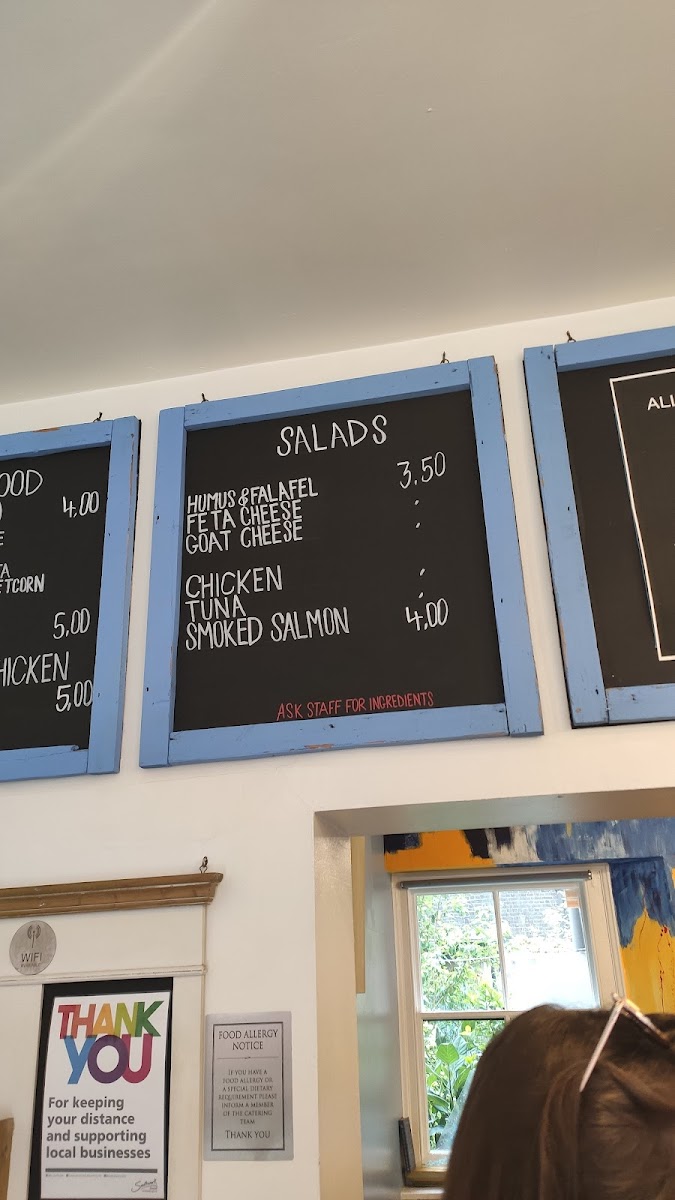 OOD
4.00
E
TA
ETCORN
5.00
HICKEN
5.00
SALADS
HUMUS & FALAFEL 3.50
FETA CHEESE "
GOAT CHEESE "
CHICKEN "
TUNA "
SMOKED SALMON 4.00
ASK STAFF FOR INGREDIENTS
ALL
WIFI
THANK
YOU
For keeping
your distance
and supporting
local businesses
FOOD ALLERGY
NOTICE
IF YOU HAVE A
FOOD ALLERGY OR
A SPECIAL DIETARY
REQUIREMENT PLEASE
INFORM A MEMBER
OF THE CATERING
TEAM
THANK YOU